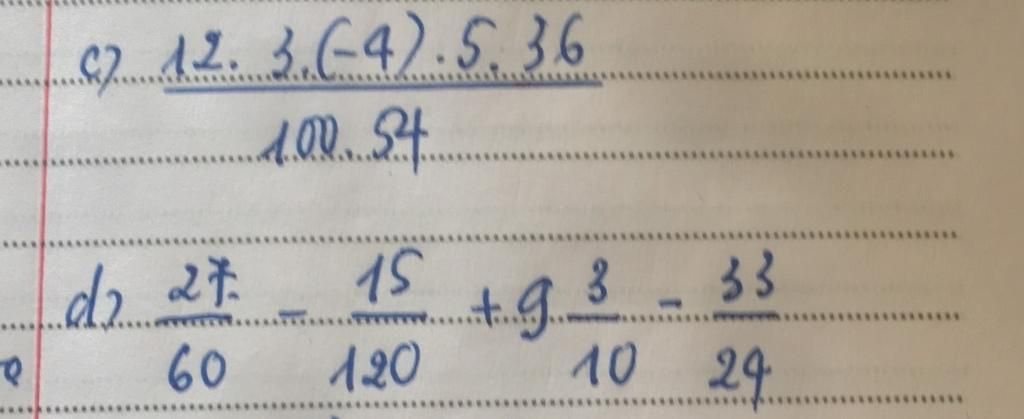 c) 12. 3.(-4). 5. 36
100. 54
d) 27/60 - 15/120 + 9 3/10 - 33/24